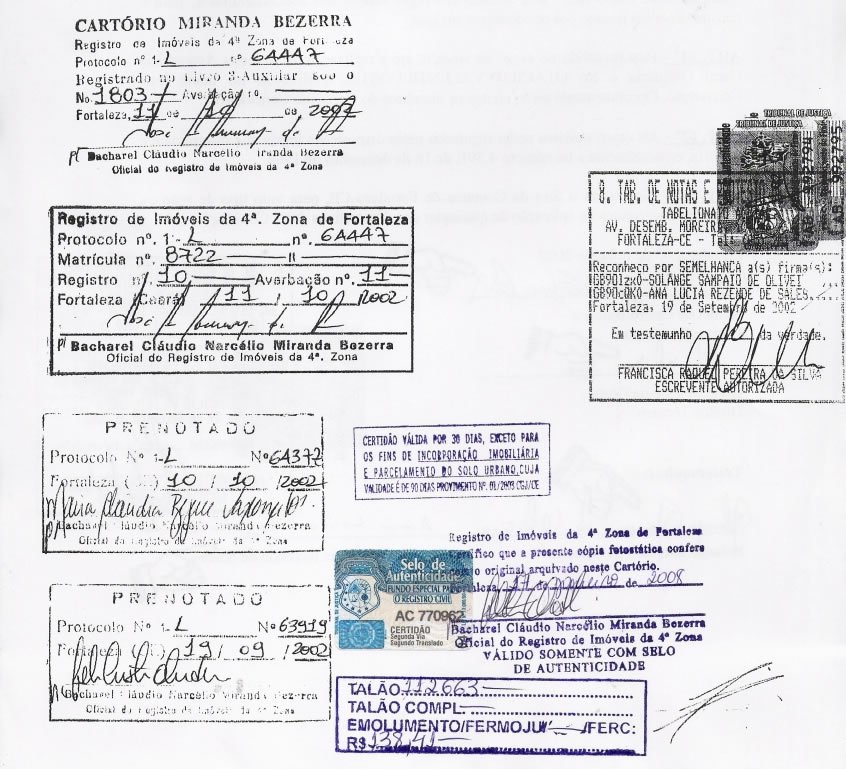 CARTÓRIO MIRANDA BEZERRA
Registro de Imóveis da 4ª Zona de Fortaleza
Protocolo nº 1-L nº. 64447
Registrado no Livro 3-Auxiliar sob o
No. 1803 Averbação no.
Fortaleza, 11 de 10 de 2002
p/ Bacharel Cláudio Narcélio Miranda Bezerra
Oficial do Registro de Imóveis da 4ª Zona
Registro de Imóveis da 4ª. Zona de Fortaleza
Protocolo nº. 1-L nº. 64447
Matrícula nº. 8722
Registro nº. 10 Averbação nº. 11
Fortaleza (Ceará) 11 / 10 / 2002
p/ Bacharel Cláudio Narcélio Miranda Bezerra
Oficial do Registro de Imóveis da 4ª. Zona
TRIBUNAL DE JUSTIÇA
TRIBUNAL DE JUSTIÇA
TAB. DE NOTAS E
TABELIONATO
AV. DESEMB. MOREIRA,
FORTALEZA-CE -
Reconheco por SEMELHANCA a(s) firma(s):
SOLANGE SAMPAIO DE OLIVEI
ANA LUCIA REZENDE DE SALES
Fortaleza, 19 de Setembro de 2002
Em testemunho da verdade.
FRANCISCA RAQUEL PEREIRA DA SILVA
ESCREVENTE AUTORIZADA
PRENOTADO
Protocolo Nº 1-L Nº 64372
Fortaleza 10 / 10 / 2002
Bacharel Cláudio Narcélio Miranda Bezerra
Oficial do Registro de Imóveis da 4ª Zona
CERTIDÃO VÁLIDA POR 30 DIAS, EXCETO PARA
OS FINS DE INCORPORAÇÃO IMOBILIÁRIA
E PARCELAMENTO DO SOLO URBANO, CUJA
VALIDADE É DE 90 DIAS PROVIMENTO Nº. 01/2003 CGJ/CE
PRENOTADO
Protocolo Nº 1-L Nº 63919
Fortaleza 19 / 09 / 2002
Bacharel Cláudio Narcélio Miranda Bezerra
Oficial do Registro de Imóveis da 4ª Zona
Selo de
Autenticidade
FUNDO ESPECIAL PARA
O REGISTRO CIVIL
AC 770962
CERTIDÃO
Segunda Via
Segundo Translado
Registro de Imóveis da 4ª Zona de Fortaleza
Certifico que a presente cópia fotostática confere
com o original arquivado neste Cartório.
Fortaleza, 17 de Janeiro de 2008
Bacharel Cláudio Narcélio Miranda Bezerra
Oficial do Registro de Imóveis da 4ª Zona
VÁLIDO SOMENTE COM SELO
DE AUTENTICIDADE
TALÃO 112663
TALÃO COMPL.
EMOLUMENTO/FERMOJU /FERC:
R$ 138,41